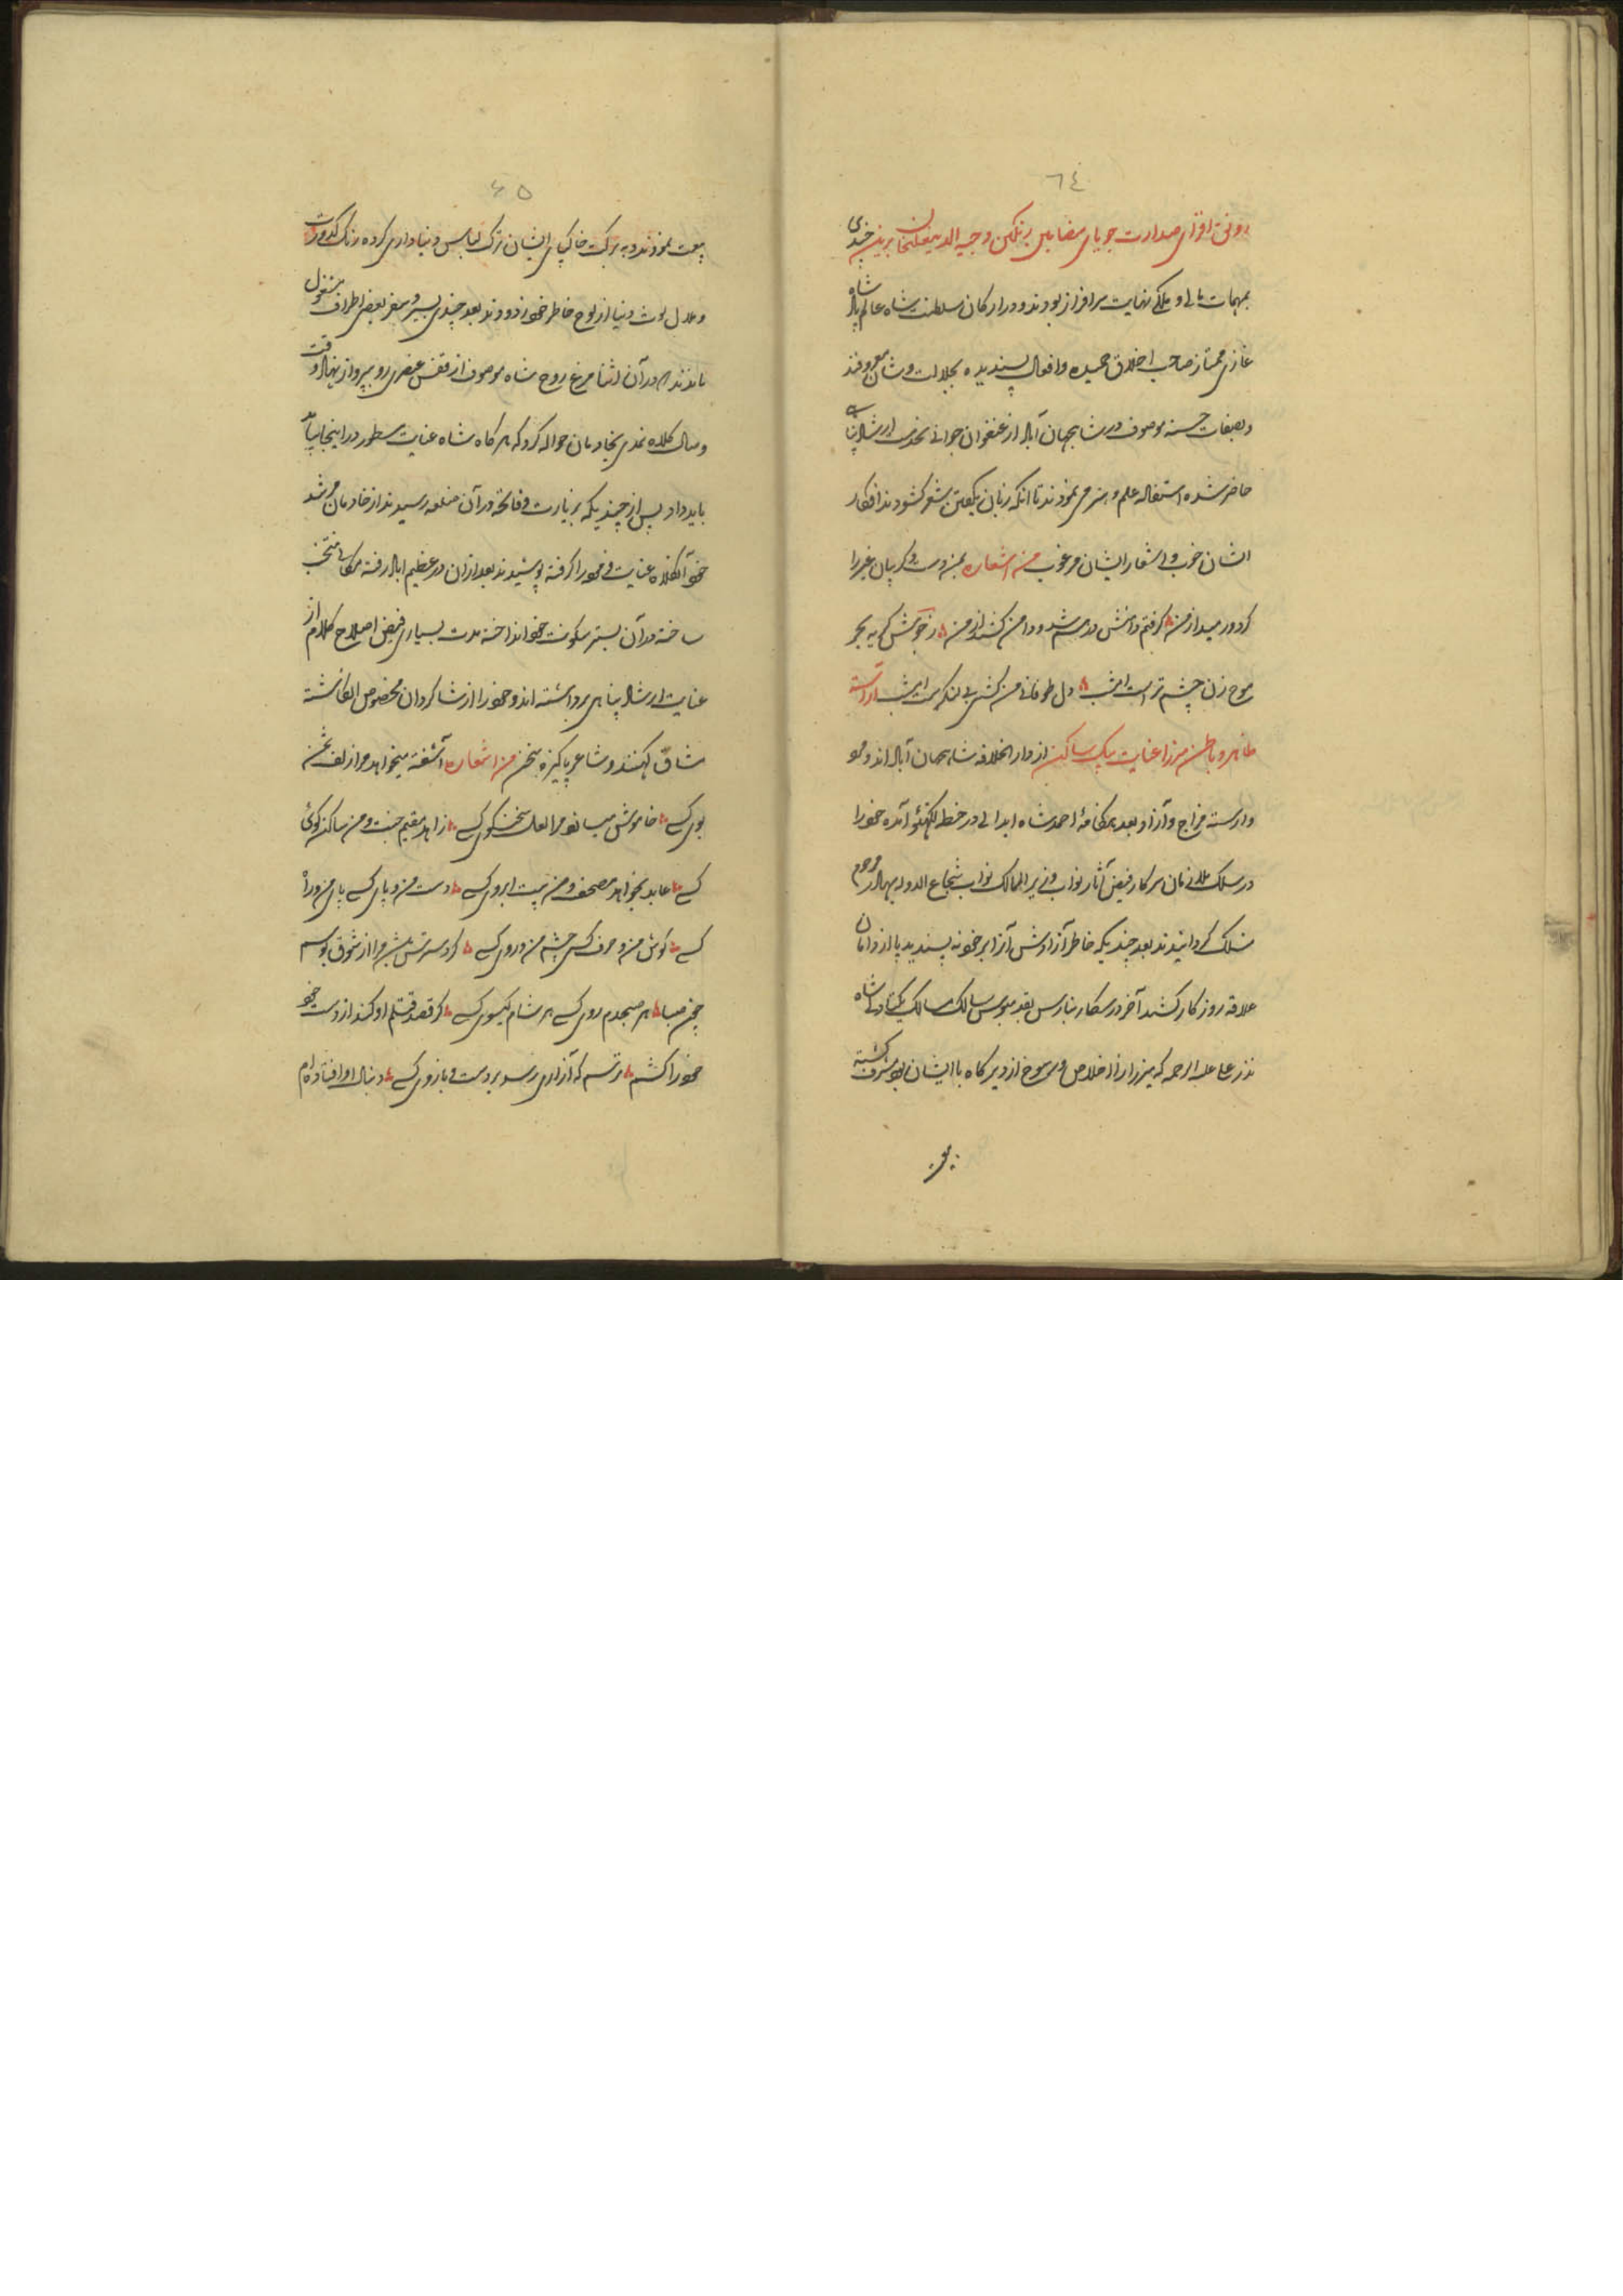 ٦٤
رونق افزای صدارت جویای مضامین رنگین وجیه الدین برین چندی
بمهمات مالی و ملکی نهایت سرافراز بودند و در ارکان سلطنت شاه عالم پادشاه
غازی ممتاز صاحب اخلاق حمیده و افعال پسندیده بجلالت و شان معروفند
و بصفات حسنه موصوف در شاهجهان آباد از عنفوان جوانی بخدمت ارشاد پناهی
حاضر شده استفاله علم و هنر می نمودند تا آنکه زبان بگفتن شعر کشودند افکار
ایشان خوب و اشعار ایشان مرغوب من اشعاره بمن دست و گریبان غیر را
کرد و رمید از من ۸ گرفتم دامنش درهم شد و دامن کشید از من ۸ ز جوشش گریه بحر
موج زن چشم تر است امشب ۸ دل طوفانی من کشتی بی لنگر است امشب آراسته
ظاهر و باطن مرزا عنایت بیک ساکن از دار الخلافه شاهجهان آباد اند و محو
وارسته مزاج و آزاد بعد هنگامهٔ احمد شاه ابدالی در خطه لکهنئو آمده خود را
در سلک ملازمان سرکار فیض آثار نواب وزیر الممالک نواب شجاع الدوله بهادر مرحوم
منسلک گردانیدند بعد چندیکه خاطر آزادوشش آنرا بر خود نه پسندید پا از دامان
علاقه روزگار کشید آخر در سکار بنارس بقدمبوس سالک مسالک یکتا دلی شاه
نذر علی علیه الرحمه که میرزا را اخلاص و رسوخ از دیرگاه با ایشان بود مشرف گشته
بیعت
٦٥
بیعت نمودند و به برکت خاکپای ایشان ترک لباس دنیاداری کرده زنگ کدورت
و ملال لوث دنیا از لوح خاطر خود زدودند بعد چندی بسیر و سفر بعضی اطراف مشغول
ماندند در آن اثنا مرغ روح شاه موصوف از قفس عنصری رو بپرواز نهاد وقت
وصال کلاه نمدی بخادمان حواله کرد که هرگاه شاه عنایت مسطور در اینجا بیاید
باید داد پس از چندیکه بزیارت و فاتحه در آن ضلعه رسیدند از خادمان مرشد
خود آنکلاه عنایتی خود را گرفته پوشیدند بعد ازان در عظیم اباد رفته مکانی منتخب
ساخته در آن بستر سکونت خود انداخته مدت بسیاری فیض اصلاح کلام از
عنایت ارشاد پناهی برداشته اند و خود را از شاگردان مخصوص انگاشته
مشاق کهنند و شاعر پاکیزه سخن من اشعاره آشفته میخواهد مرا زلف سخن
بوی کسی ۸ خاموش میسازد مرا لعل سخن گوی کسی ۸ زاهد مقیم جنت و من ساکن کوی
کسی ۸ عابد بخواهد مصحف و من بیت ابروی کسی ۸ دست من و پای کسی پای من و راه
کسی ۸ گوش من و حرف کسی چشم من و روی کسی ۸ گر دسترس باشد مرا از شوق بوسم
چون صبا ۸ هر صبحدم روی کسی هر شام گیسوی کسی ۸ گر قصد قتلم او کند از دست خود
خود را کشم ۸ ترسم که آزاری رسد بر دست و بازوی کسی ۸ دنبال او افتاده ام